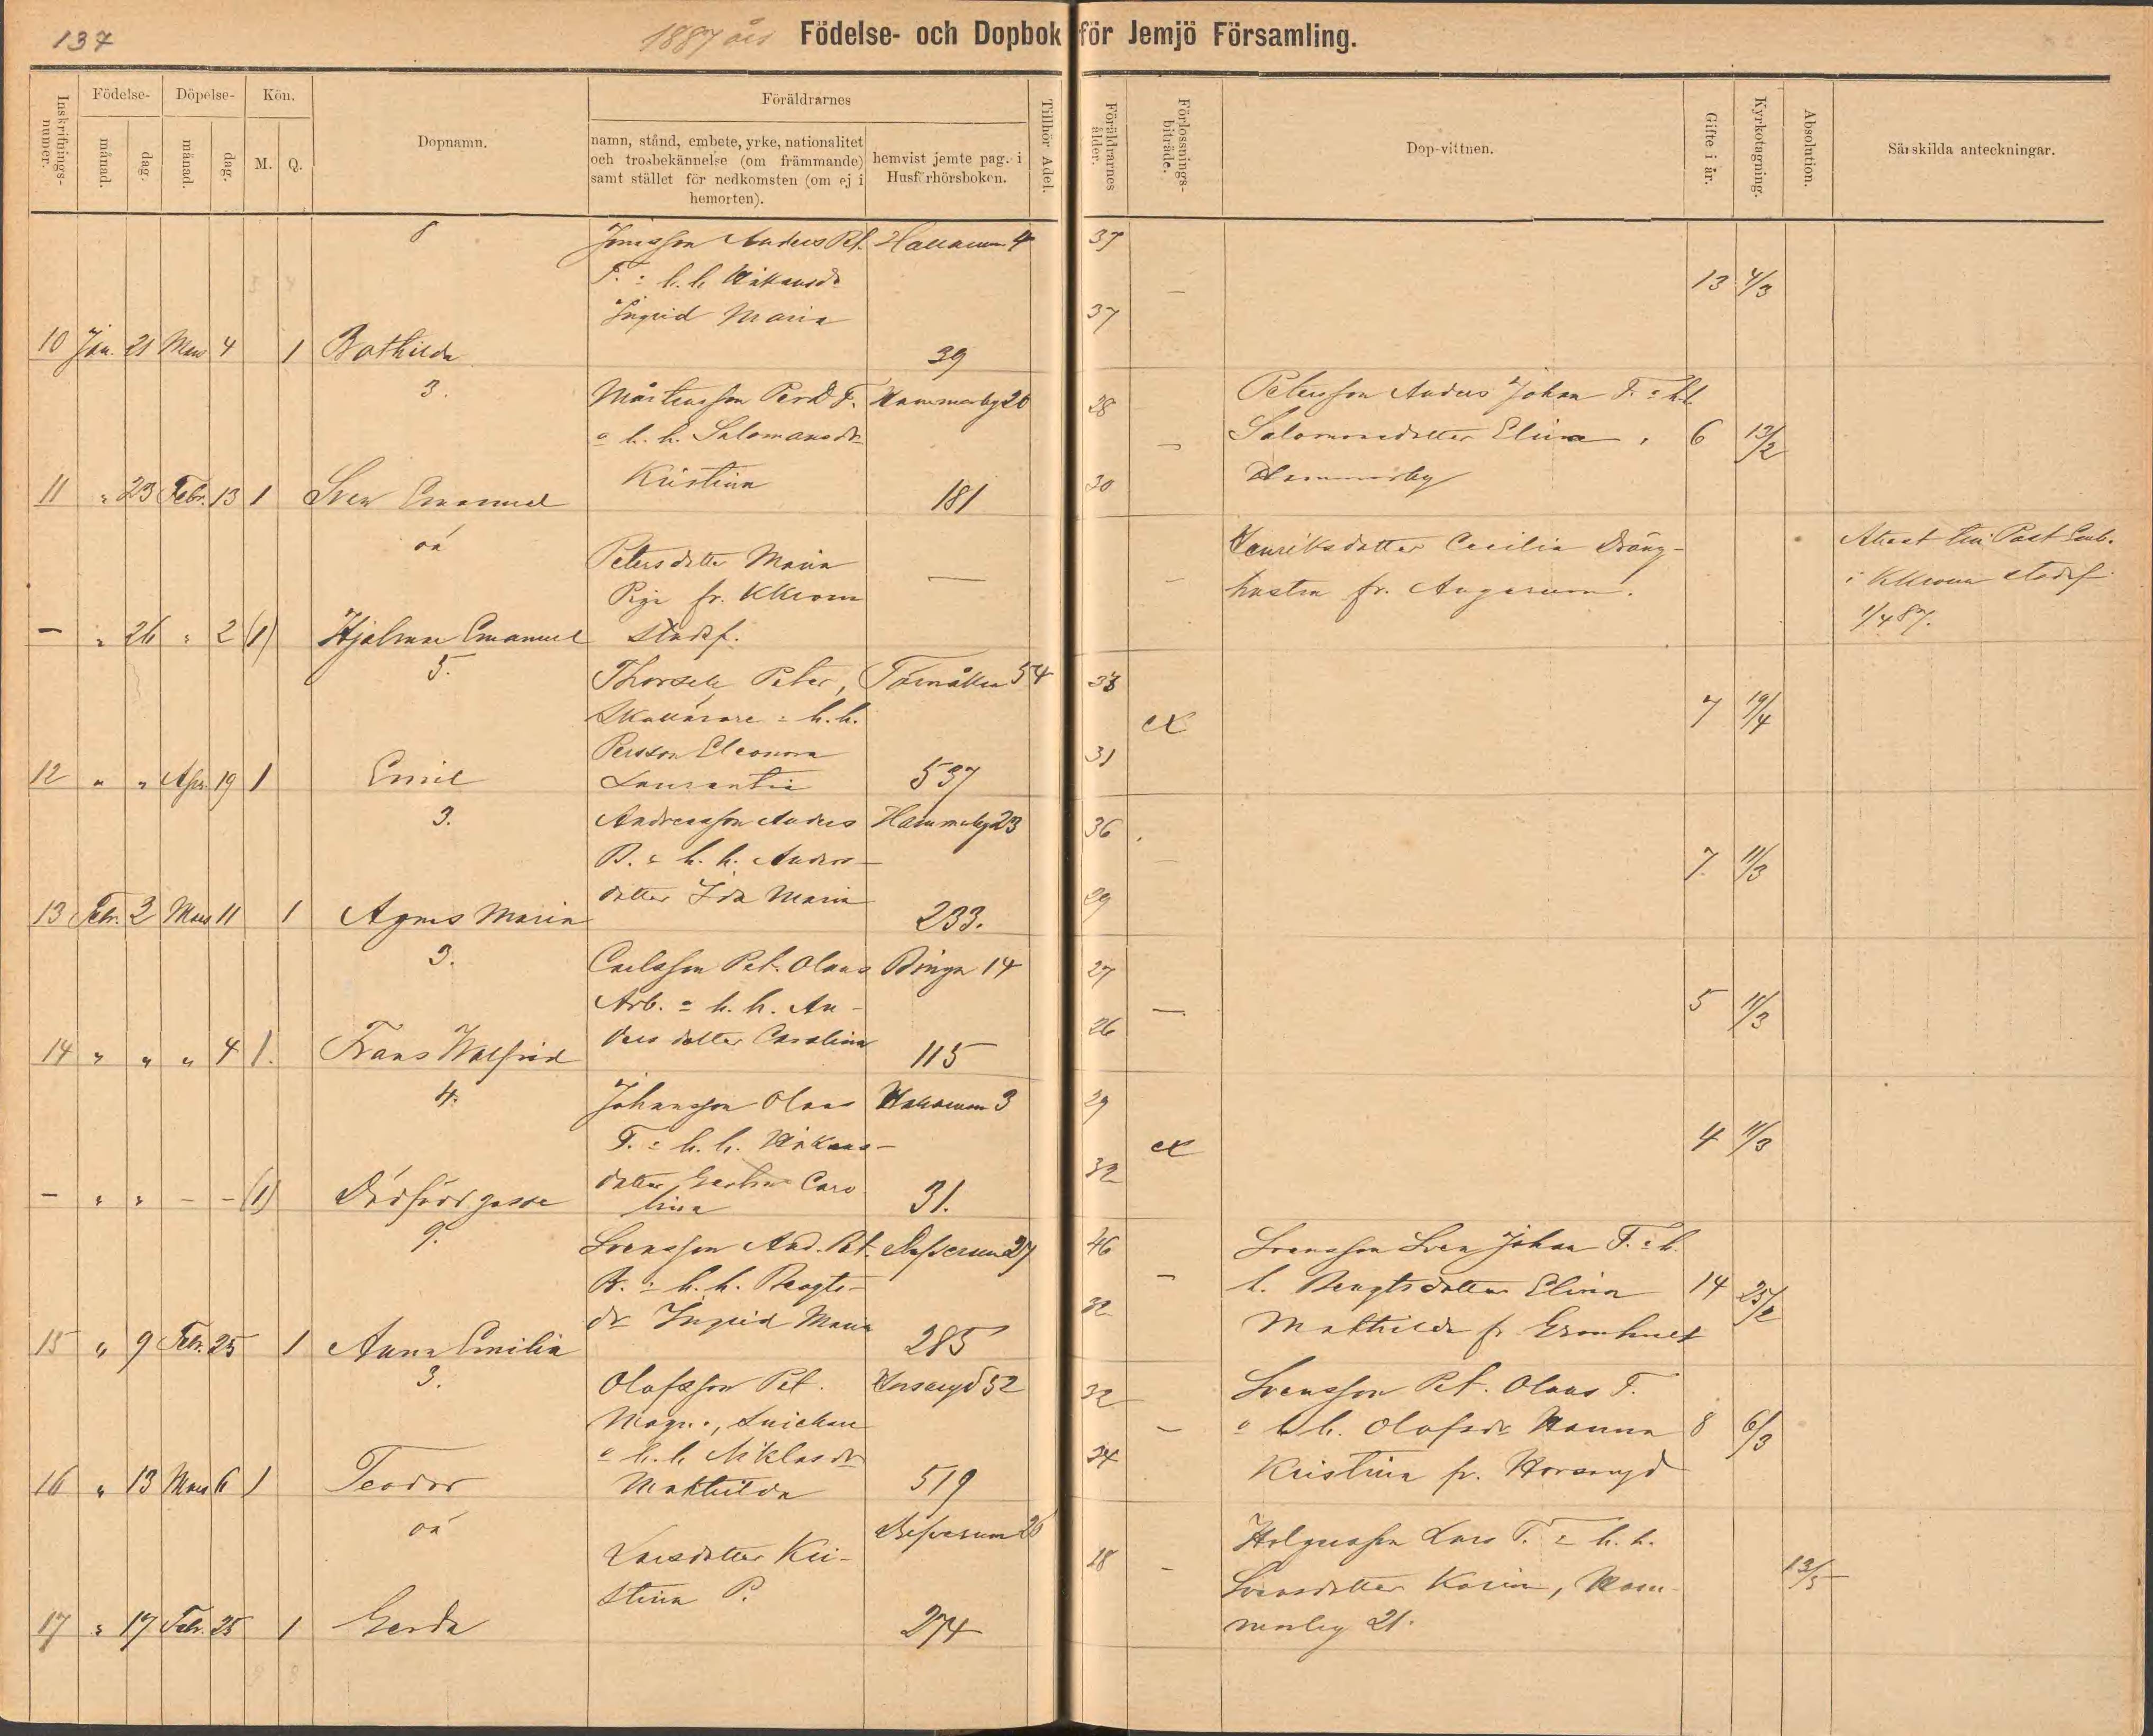 137
1887 års Födelse- och Dopbok för Jemjö Församling.
Inskrifnings-numer.
Födelse-
månad.
dag.
Döpelse-
månad.
dag.
Kön.
M.
Q.
Dopnamn.
Föräldrarnes
namn, stånd, embete, yrke, nationalitet
och trosbekännelse (om främmande)
samt stället för nedkomsten (om ej i
hemorten).
hemvist jemte pag. i
Husförhörsboken.
Tillhör Adel.
Föräldrarnes ålder.
Förlossnings-biträde.
Dop-vittnen.
Gifte i år.
Kyrkotagning.
Absolution.
Särskilda anteckningar.
8 Jonasson Anders Pet. 4 37
h. h. Håkansdr
Ingrid Maria 37 — 13 4/3
10 Jan. 21 Mars 4 1 Bothilda 39
3. Mårtensson Per F. Hammarby 20 28 Petersson Anders Johan F. o h.h.
o h. h. Salomonsdr — Salomonsdotter Elina, 6 13/2
Kristina 30 Hammarby
11 " 23 Febr. 13 1 Sven Emanuel 181
oä Petersdotter Maria Henriksdotter Cecilia Dräng-
Piga fr. KKrona — — hustru fr. Angarum.
Attest till Past. Emb.
i KKrona stadsf.
1/4 87.
— " 26 " 2 (1) Hjalmar Emanuel stadsf.
5. Thorsell Peter, Törnåkra 54 33
h. h. ex 7 19/4
Persson Eleonora 31
12 " " Apr. 19 1 Emil Laurentia 537
3. Andreasson Anders Hammarby 23 36
h. h. Anders- — 7. 11/3
dotter Ida Maria 29
13 Febr. 2 Mars 11 1 Agnes Maria 233.
3. Carlsson Pet. Olaus Binga 14 27
Arb. o h. h. An- — 5 11/3
ders dotter Carolina 26
14 " " " 4 1. Frans Walfrid 115
4. Johansson Olaus 3 29
F. o h. h. Håkans- ex 4 11/3
dotter Caro- 32
— " " — — (1) Dödfödd gosse lina 31.
9. Svensson And. Pet. 27 46 Svensson Sven Johan F. o h.
h. h. Bengts- — h. Bengtsdotter Elina 14 25/2
dr Ingrid Maria 32 Mathilda fr.
15 " 9 Febr. 25 1 Anna Emilia 285
3. Olofsson Pet. Horsaryd 52 32 Svensson Pet. Olaus F.
Magn., Snickare — o h. h. Olofsdr Hanna 8 6/3
o h. h. Niklasdr 34 Kristina fr. Horsaryd
16 " 13 Mars 6 1 Teodor Mathilda 519
oä 26 Holgersson Lars F. o h. h.
Larsdotter Kri- 28 — Svensdotter Karin, Ham- 13/5
stina P. marby 21.
17 " 17 Febr. 25 1 Gerda 274